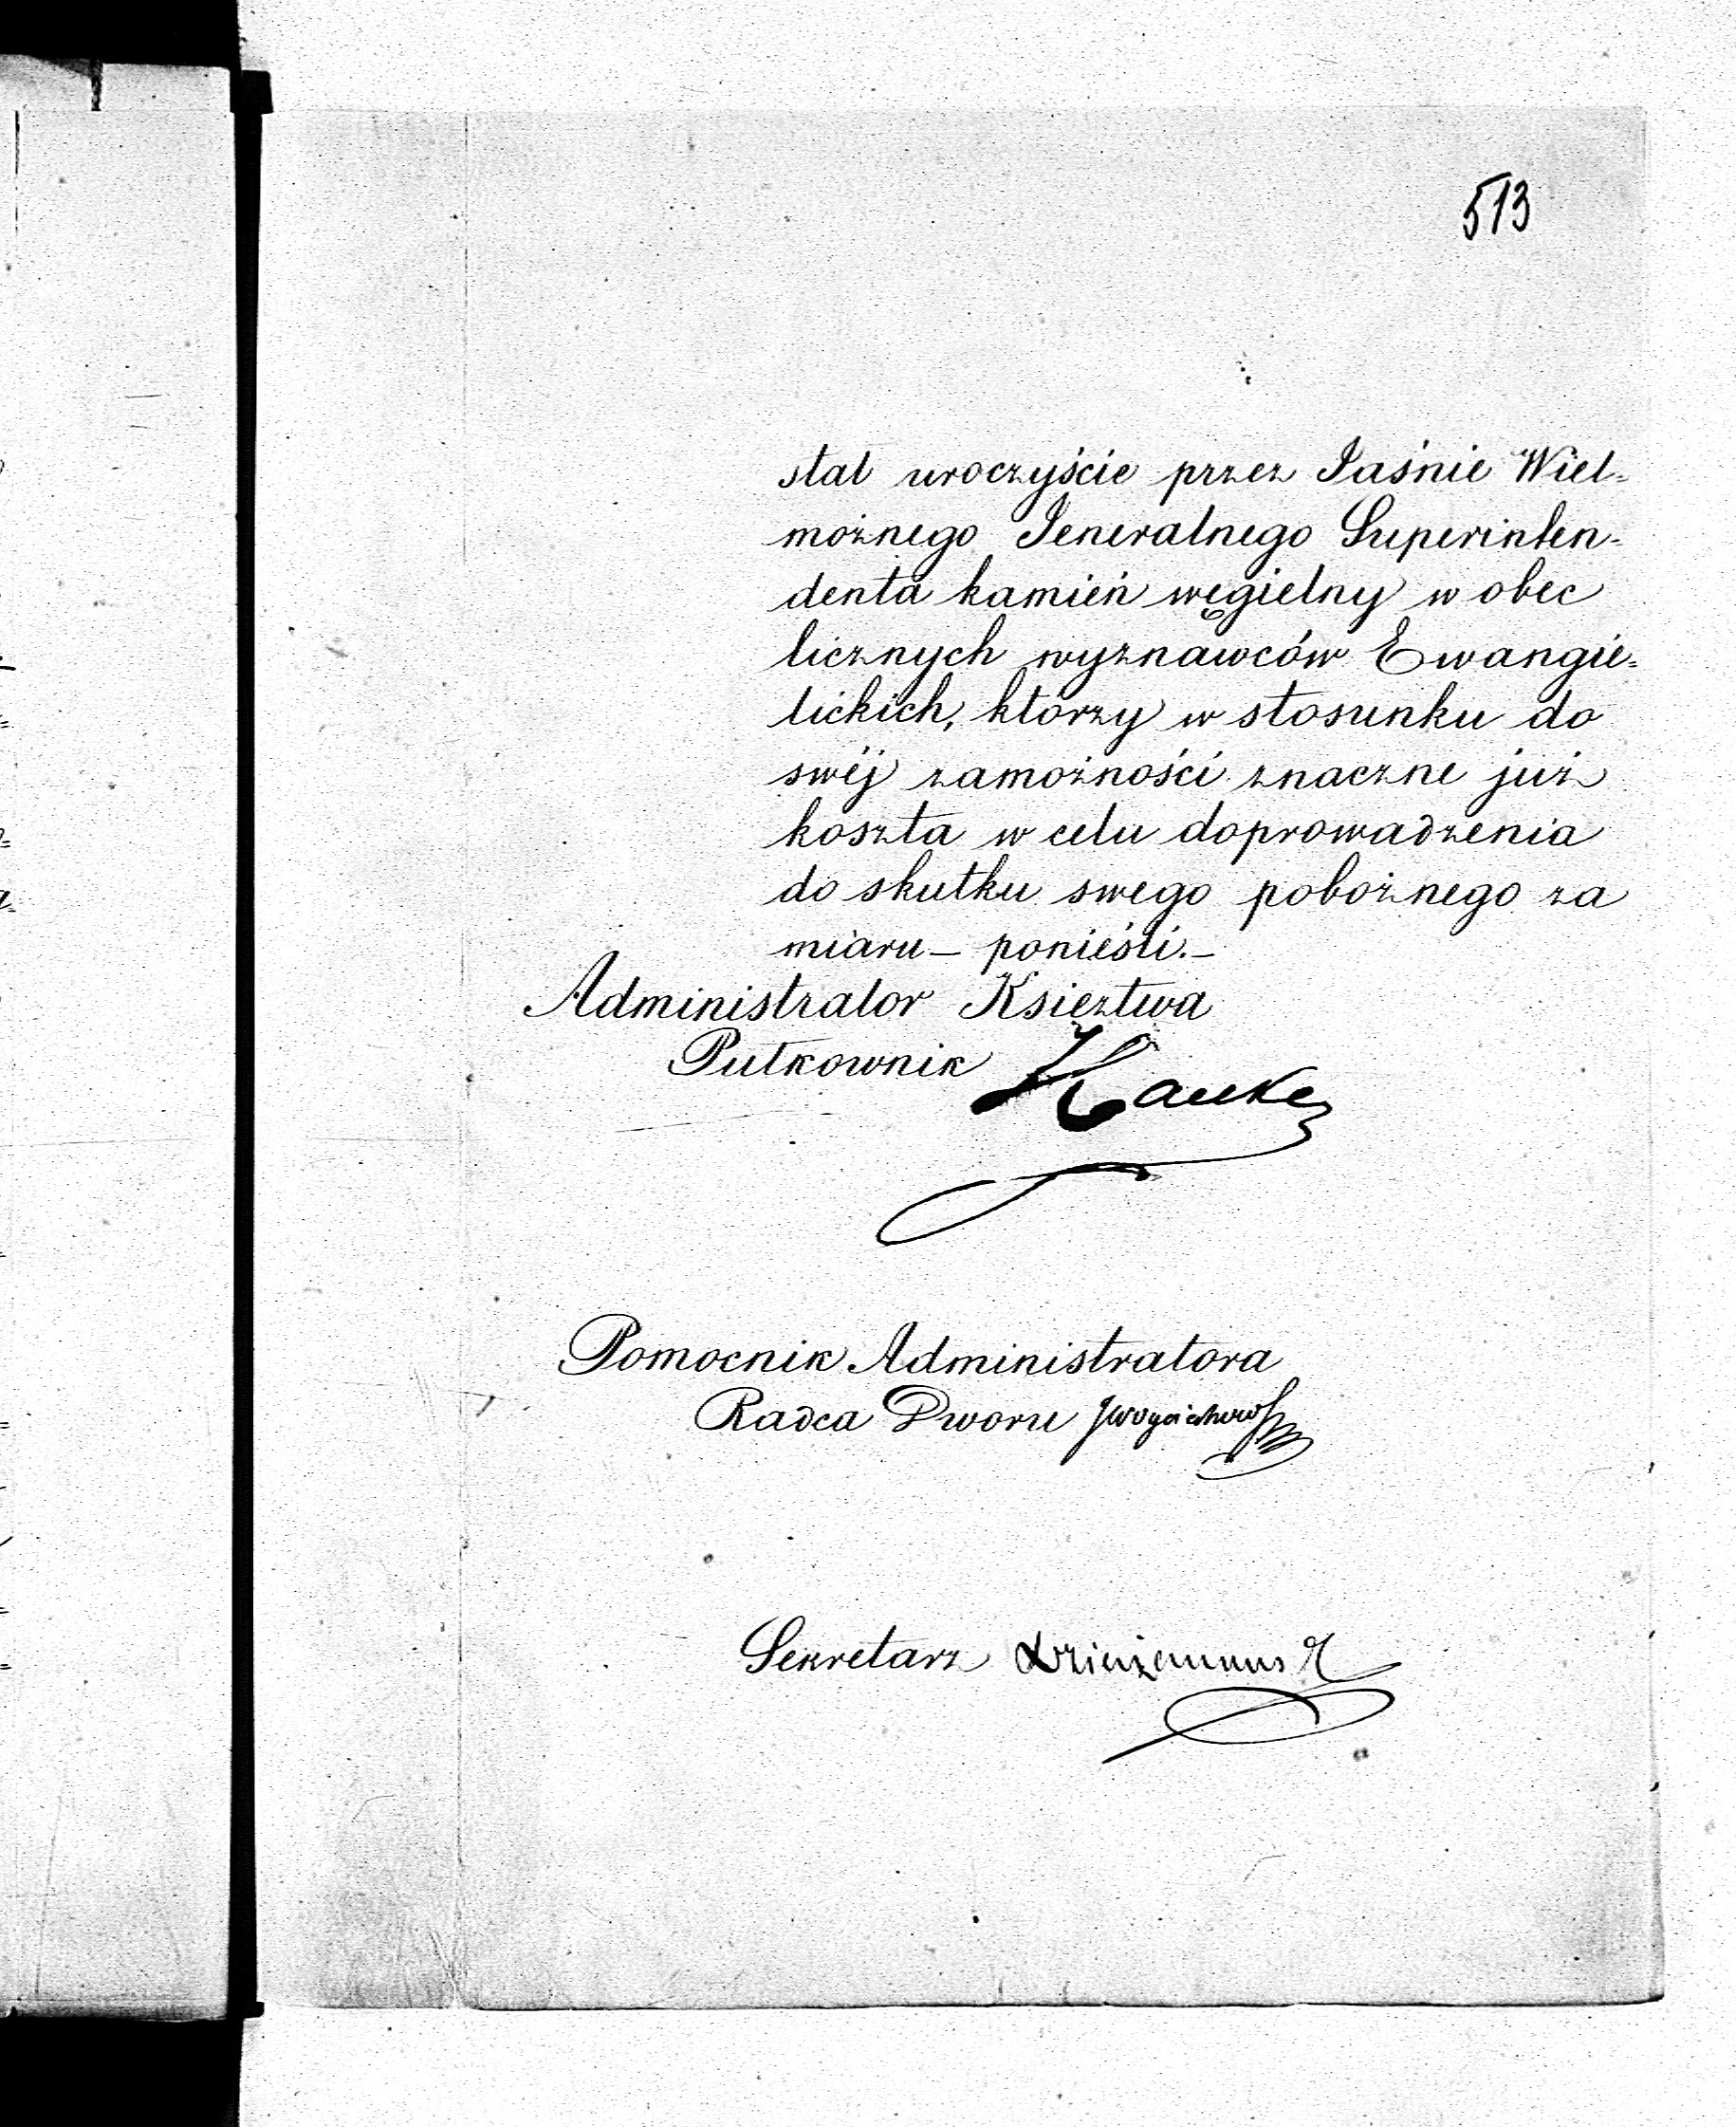 513
stał uroczyście przez Jaśnie Wiel=
możnego Jeneralnego Superinten-
denta kamień węgielny w obec
licznych wyznawców Ewangie=
lickich, którzy w stosunku do
swéj zamożności znaczne już
koszta w celu doprowadzenia
do skutku swego pobożnego za
miaru – ponieśli. –
Administrator Księztwa
Pułkownik Hauke
Pomocnik Administratora
Radca Dworu
Sekretarz